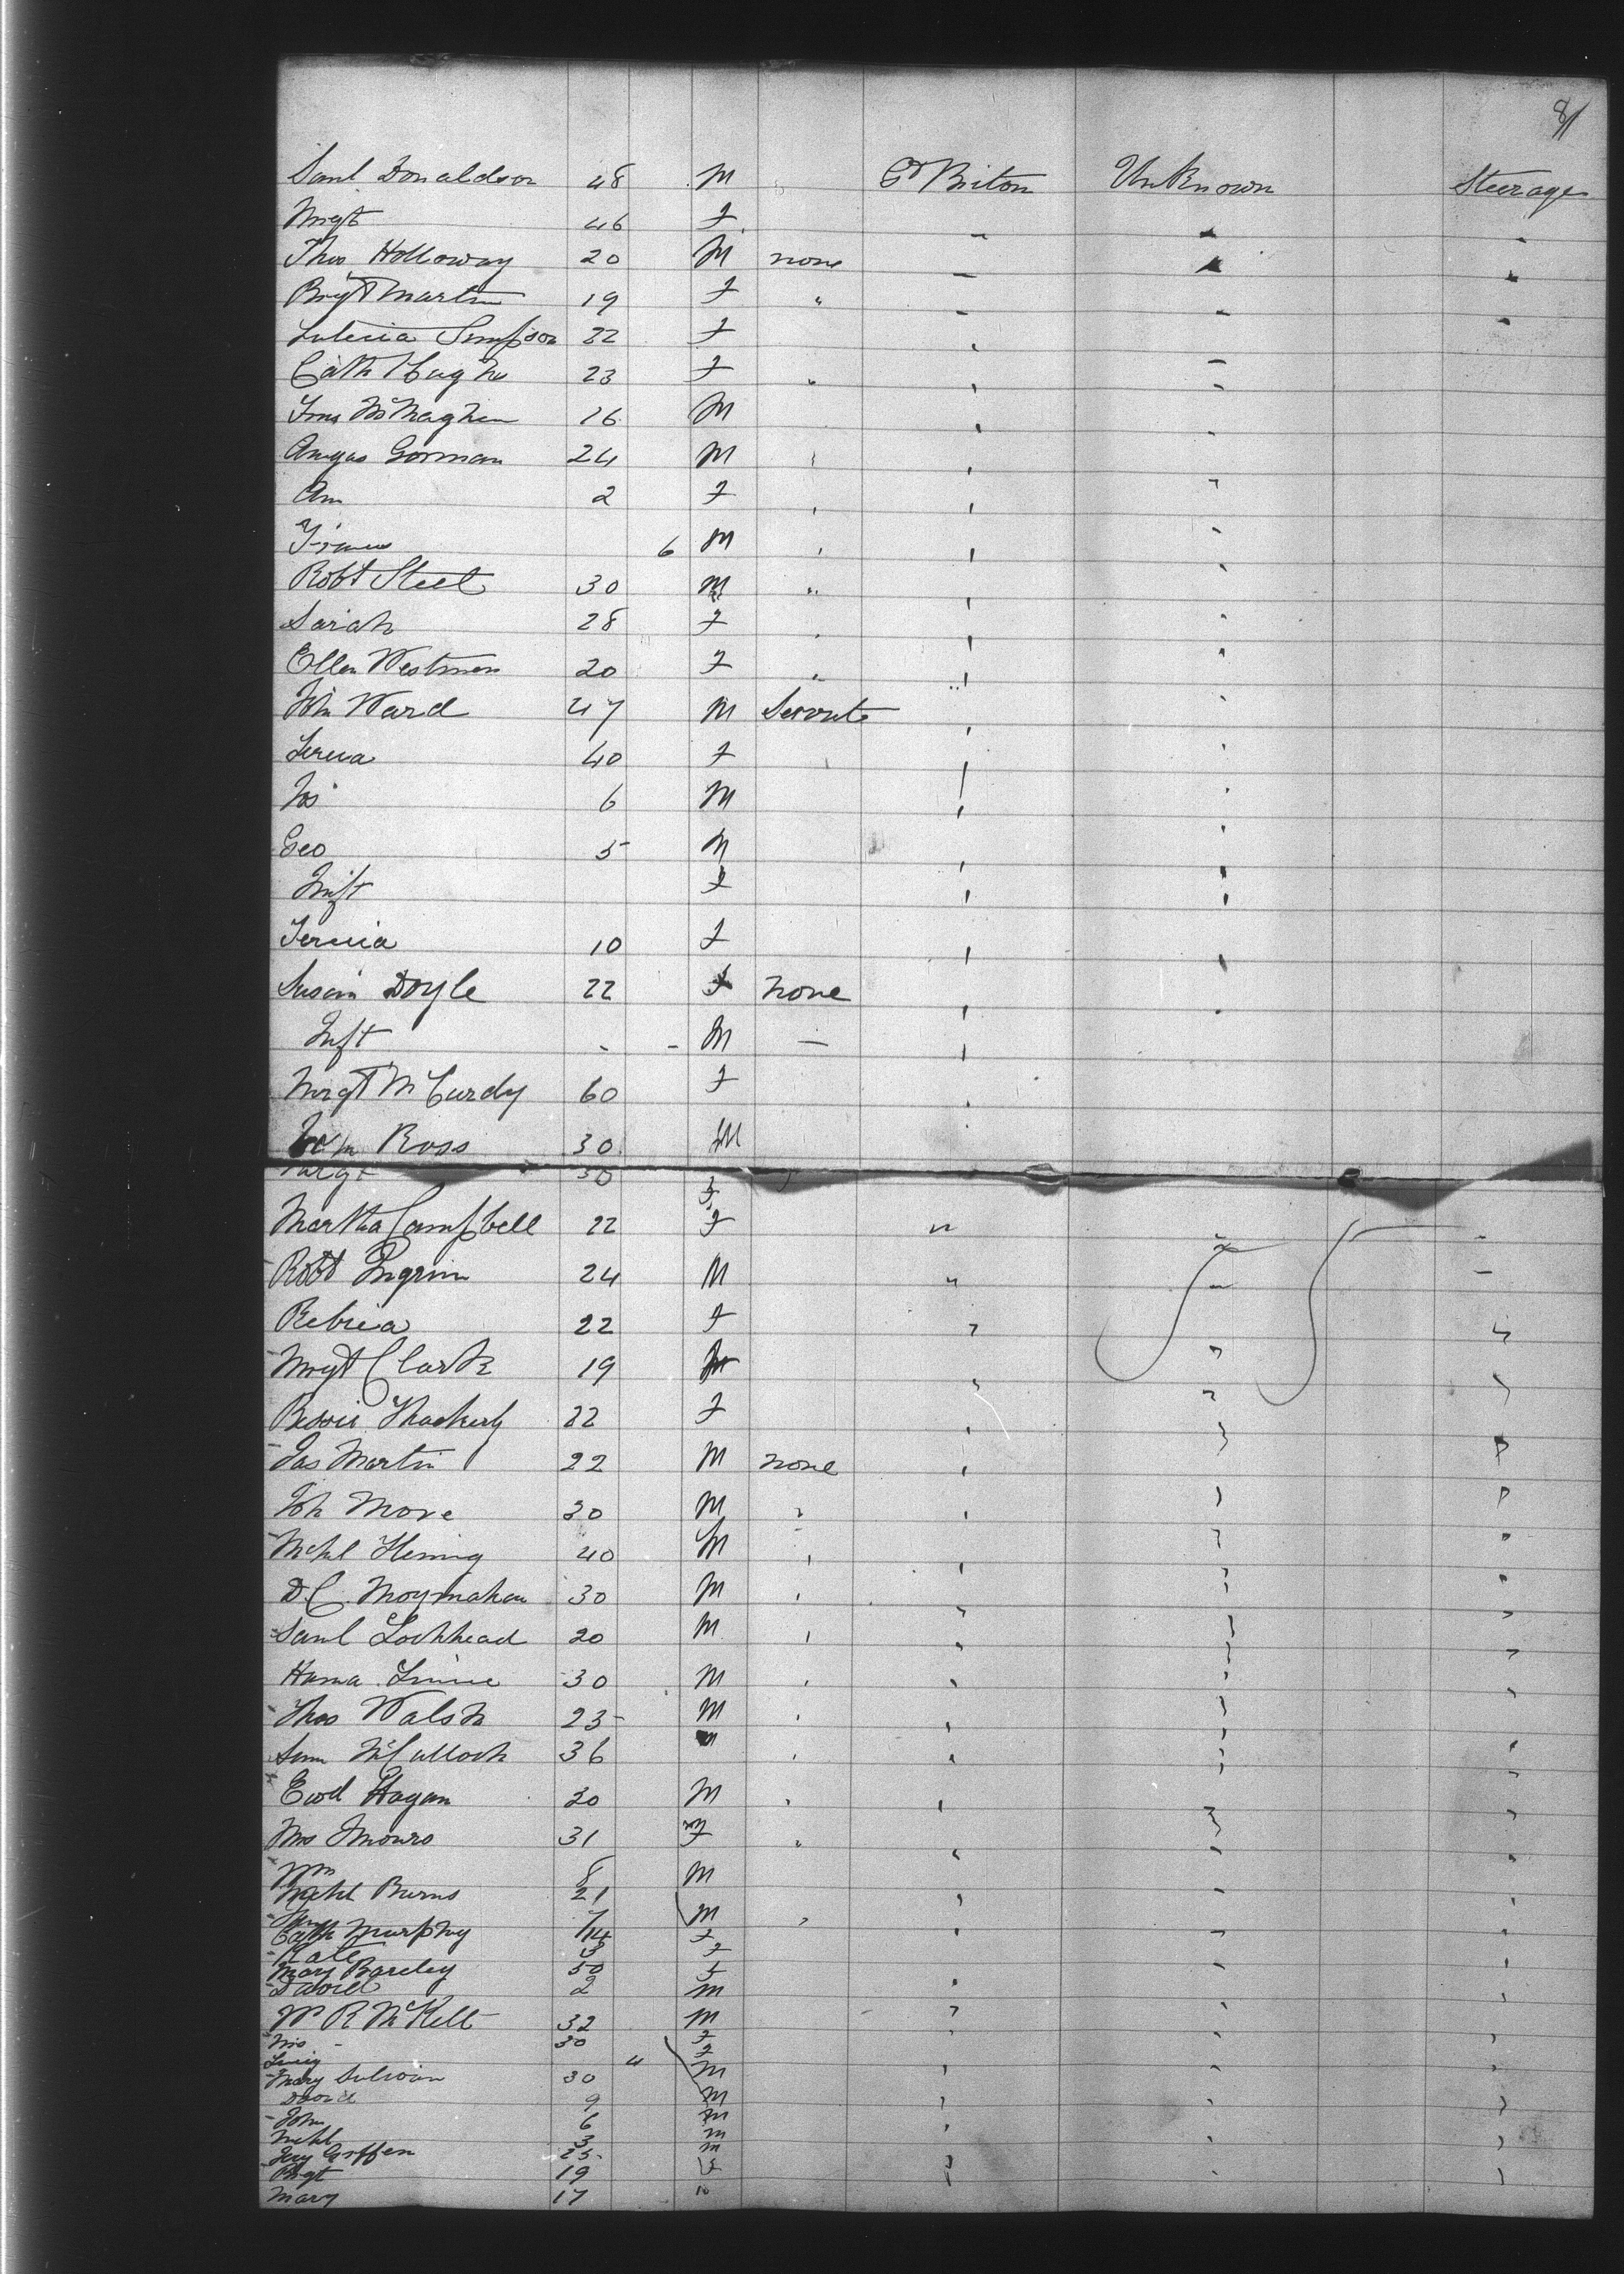 81
Saml Donaldson 48 M Gt Briton UnKnown Steerage
Mrgt 46 F " " "
Thos Holloway 20 M none " " "
Brigt Martin 19 F " " " "
Leticia Simpson 22 F " "
Cath Hughs 23 F " " "
16 M " "
Angus Gorman 24 M " " "
Ann 2 F " " "
6 M " " "
Robt Steel 30 M " " "
Sarah 28 F " " "
Ellen Westman 20 F " " "
Joh Ward 47 M Servnt " "
40 F " "
Jos 6 M " "
Geo 5 M " "
Inft F " "
10 F " "
Susan Doyle 22 F none " "
Inft - - M — "
Mrgt McCurdy 60 F "
Ross 30 M
Margt 30 F
Martha Campbell 22 F " " "
Robt Ingrim 24 M " " "
Rebica 22 F " " "
Mrgt Clark 19 " " "
Bessie Thackerly 22 F " " "
Jas Martin 22 M none " " "
Joh More 30 M " " " "
Mchl Heming 40 M " " " "
D.C. Moynahan 30 M " " " "
Saml Lochhead 20 M " " " "
30 M " " " "
Thos Walsh 23 M " " " "
Sam McCulloch 36 M " " " "
Ewd Hagan 20 M " " " "
Mrs Munro 31 F " " " "
Wm 8 M
Mchl Burns 21 M " " " "
7
Cath Murphy 14 F " " "
Kate 3 F
Mary Barcley 50 F
David 2 M
W R McKell 32 M " " "
Mrs - 30 F
4 F
Mary Sulivan 30 M
David 9 M
John 6 M
Mchl 3 M
Griffen 25 M
Brgt 19 F
Mary 17